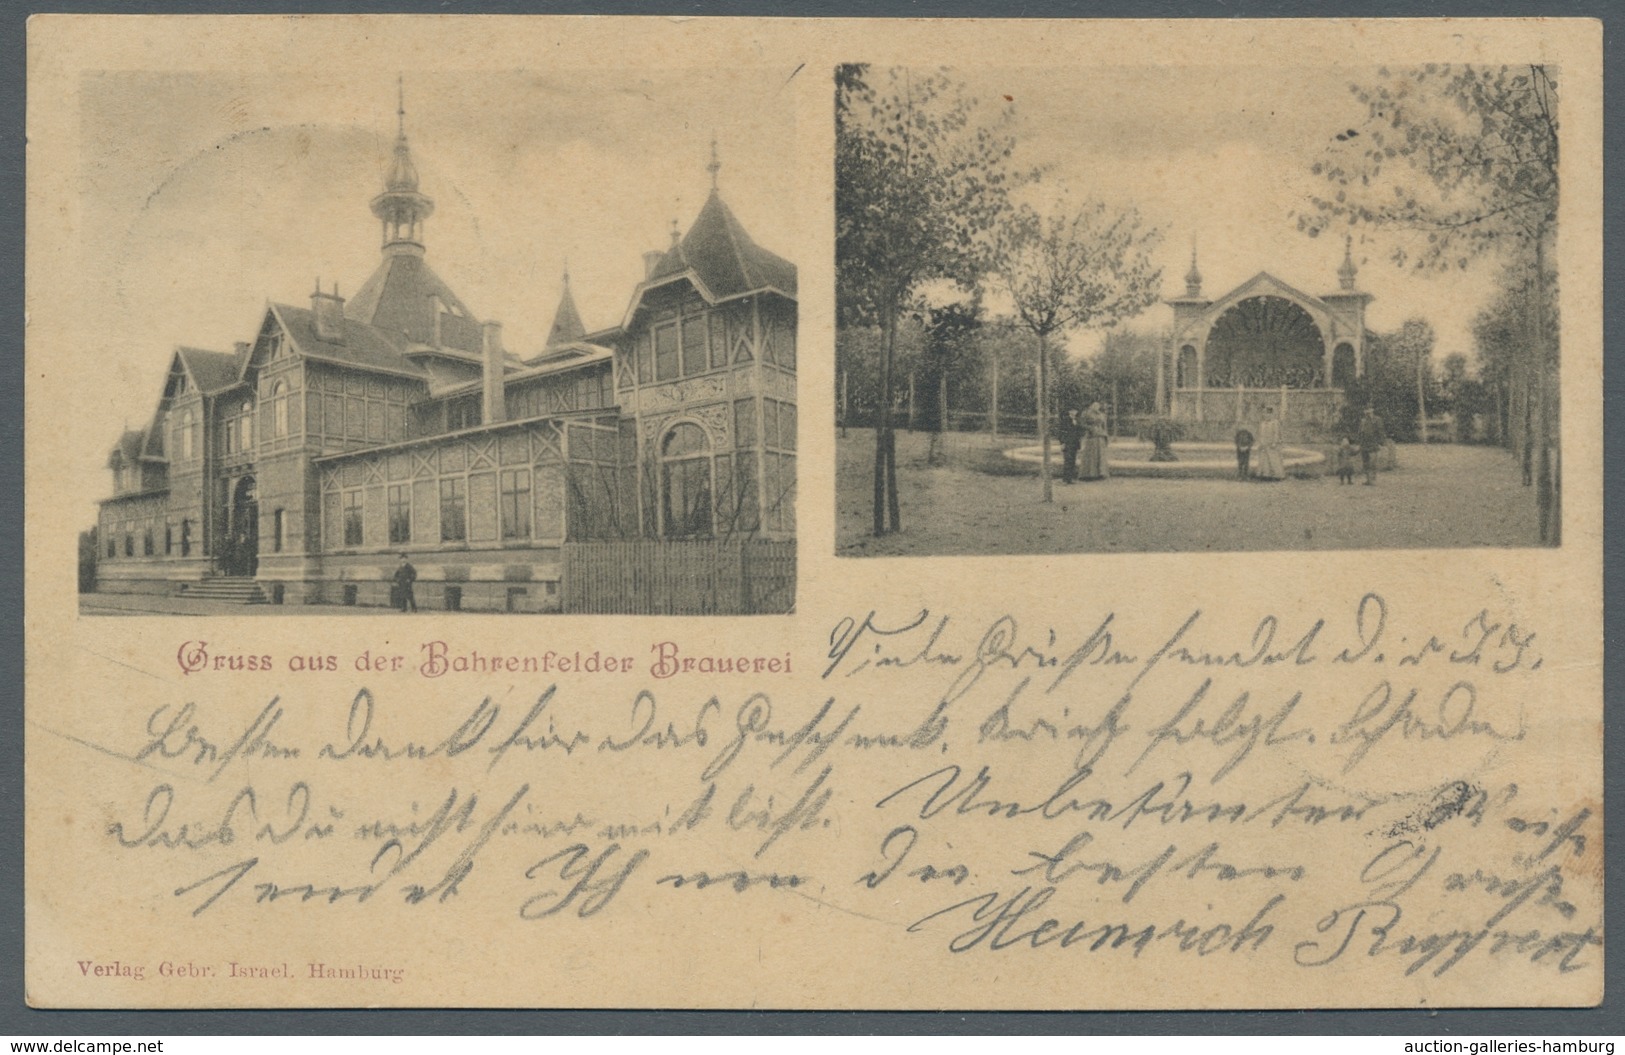 Gruss aus der Bahrenfelder Brauerei
Viele Grüße sendet dir
Besten Dank für das Geschenk. Brief folgt. Schade
das du nicht hier mit bist. Unbekanter Weise
sendet Ihnen die besten Grüße
Heinrich Ruppert
Verlag Gebr. Israel. Hamburg
www.delcampe.net
auction-galleries-hamburg